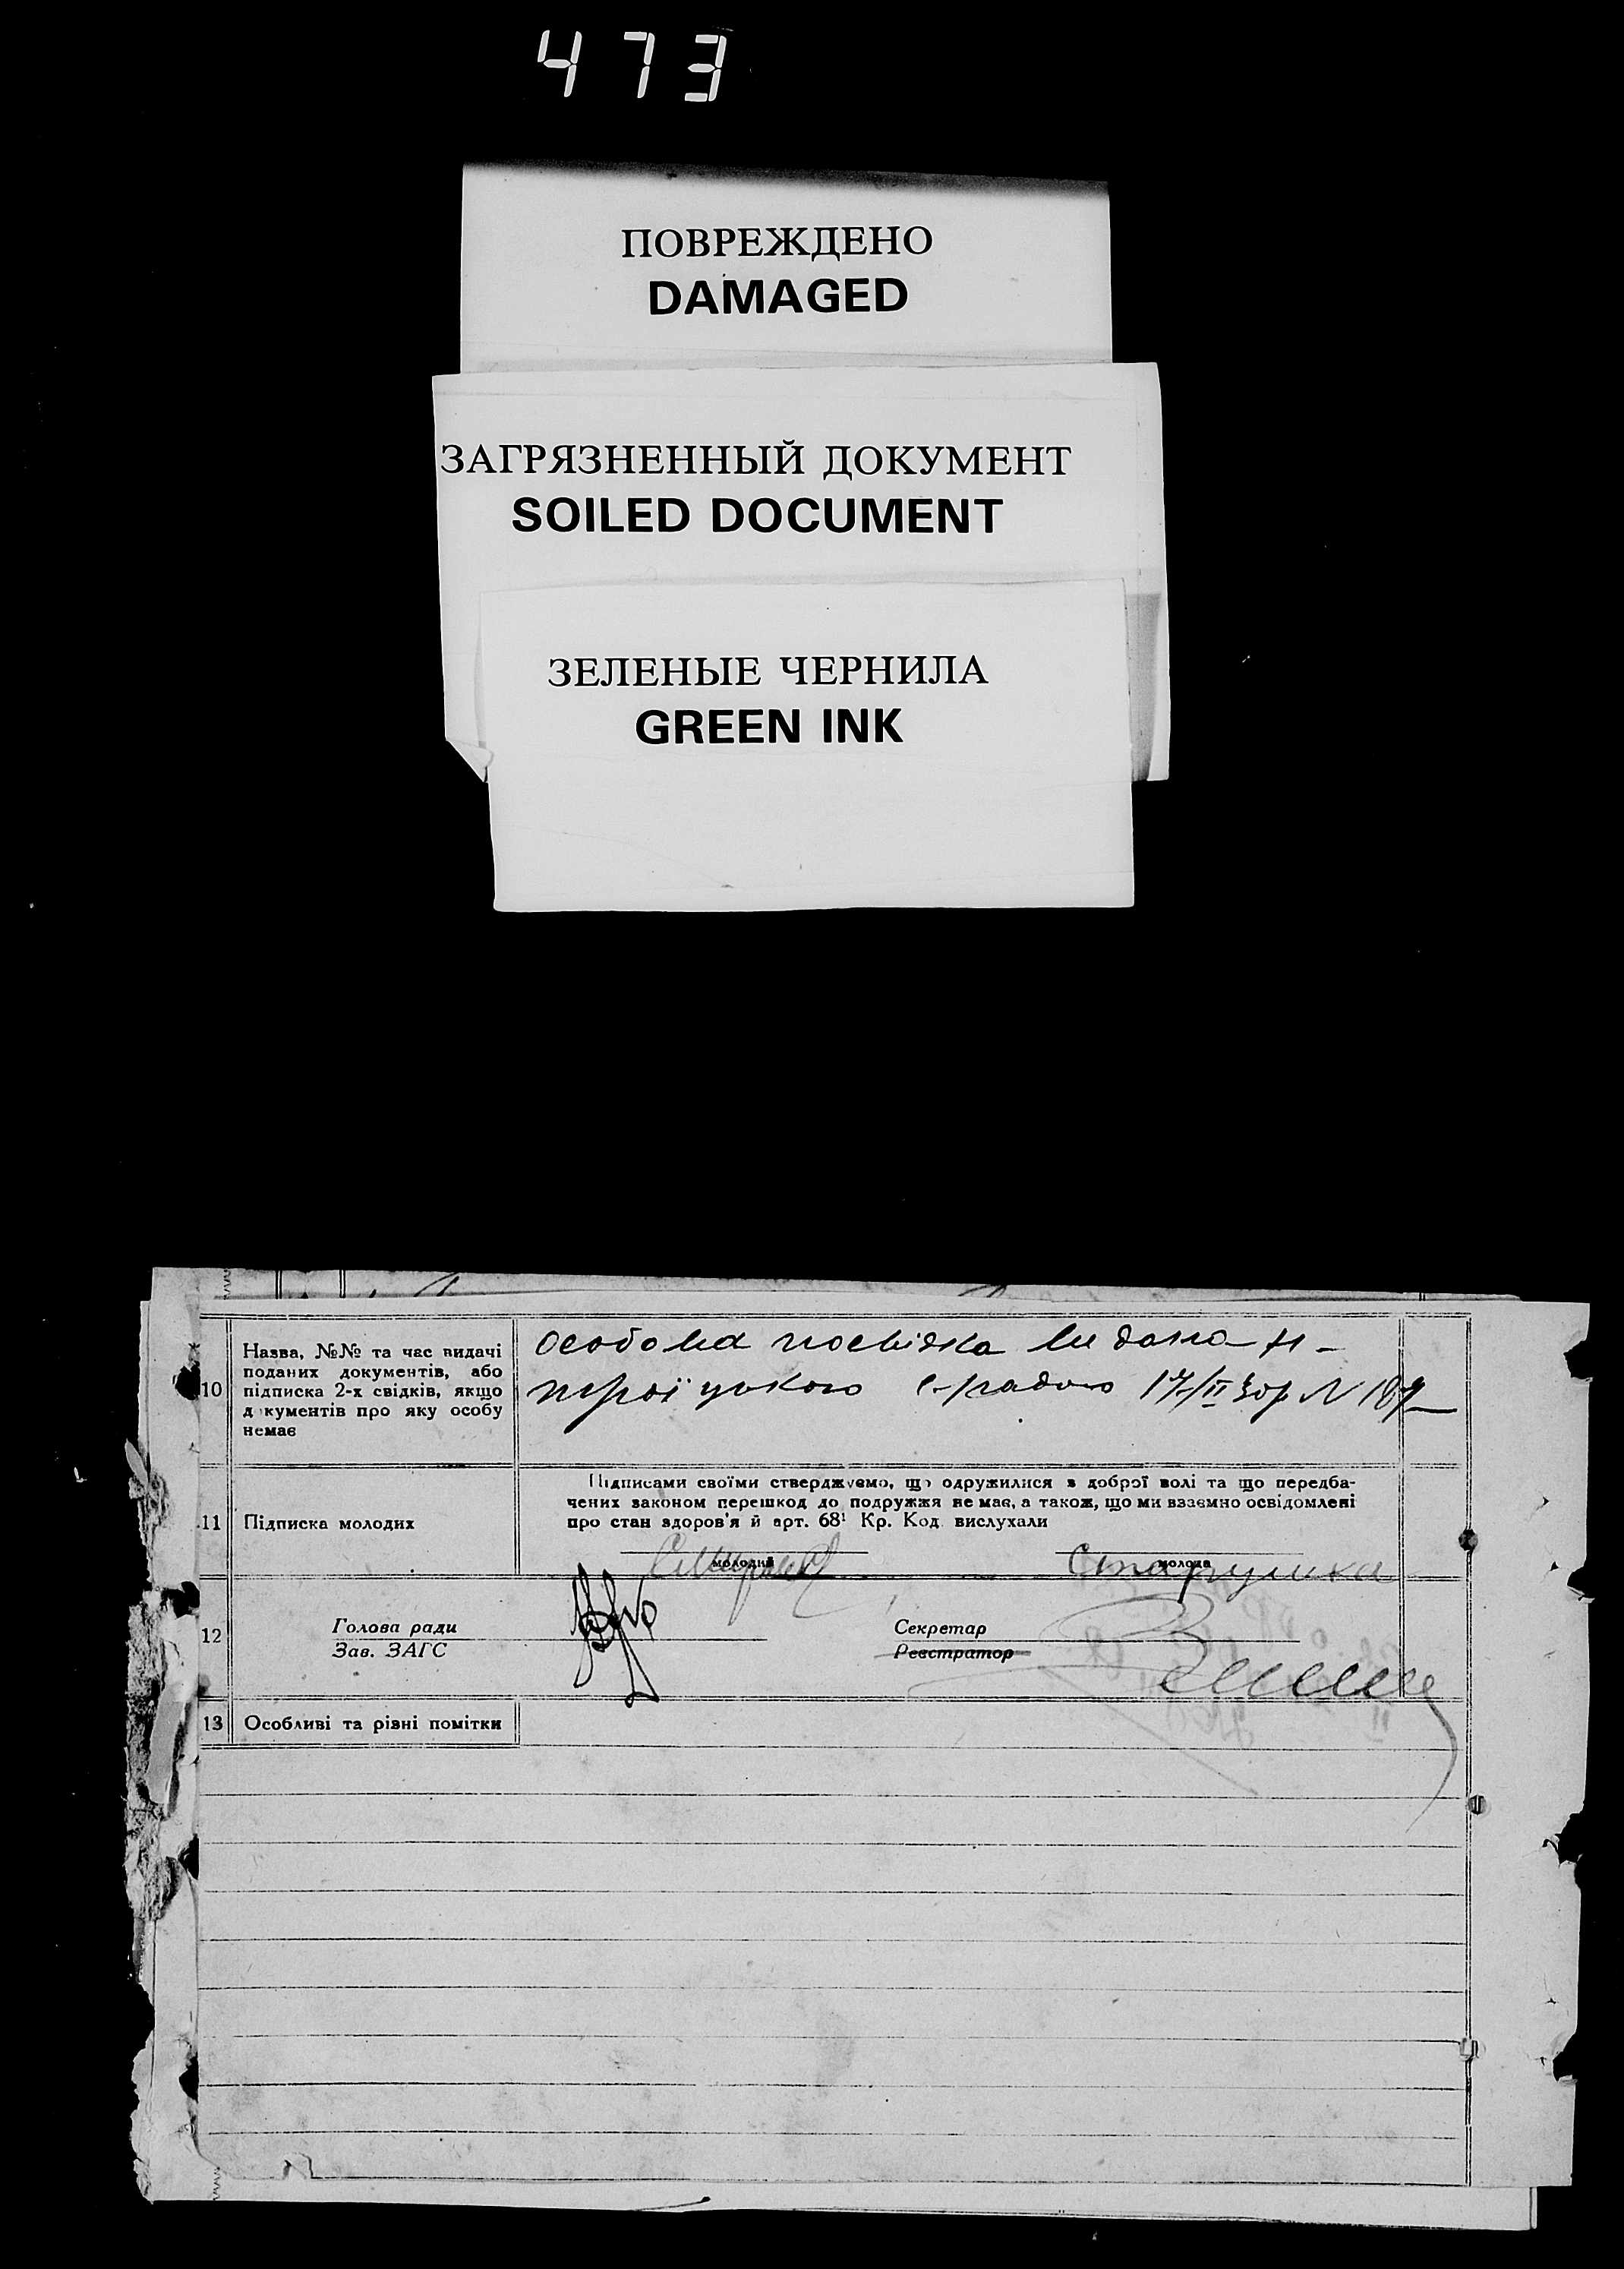 473
ПОВРЕЖДЕНО
DAMAGED
ЗАГРЯЗНЕННЫЙ ДОКУМЕНТ
SOILED DOCUMENT
ЗЕЛЕНЫЕ ЧЕРНИЛА
GREEN INK
10
Назва, №№ та час видачі
поданих документів, або
підписка 2-х свідків, якщо
д кументів про яку особу
немає
особова посвідка видана Н-
троїцькою с-радою 17/II 30р N
11
Підписка молодих
Підписами своїми стверджуємо, що одружилися з доброї волі та що передба-
чених законом перешкод до подружжя немає, а також, що ми взаємно освідомлені
про стан здоров'я й арт. 68¹ Кр. Код. вислухали
молодий
молода
12
Голова ради
Зав. ЗАГС
Секретар
Реєстратор
13
Особливі та різні помітки